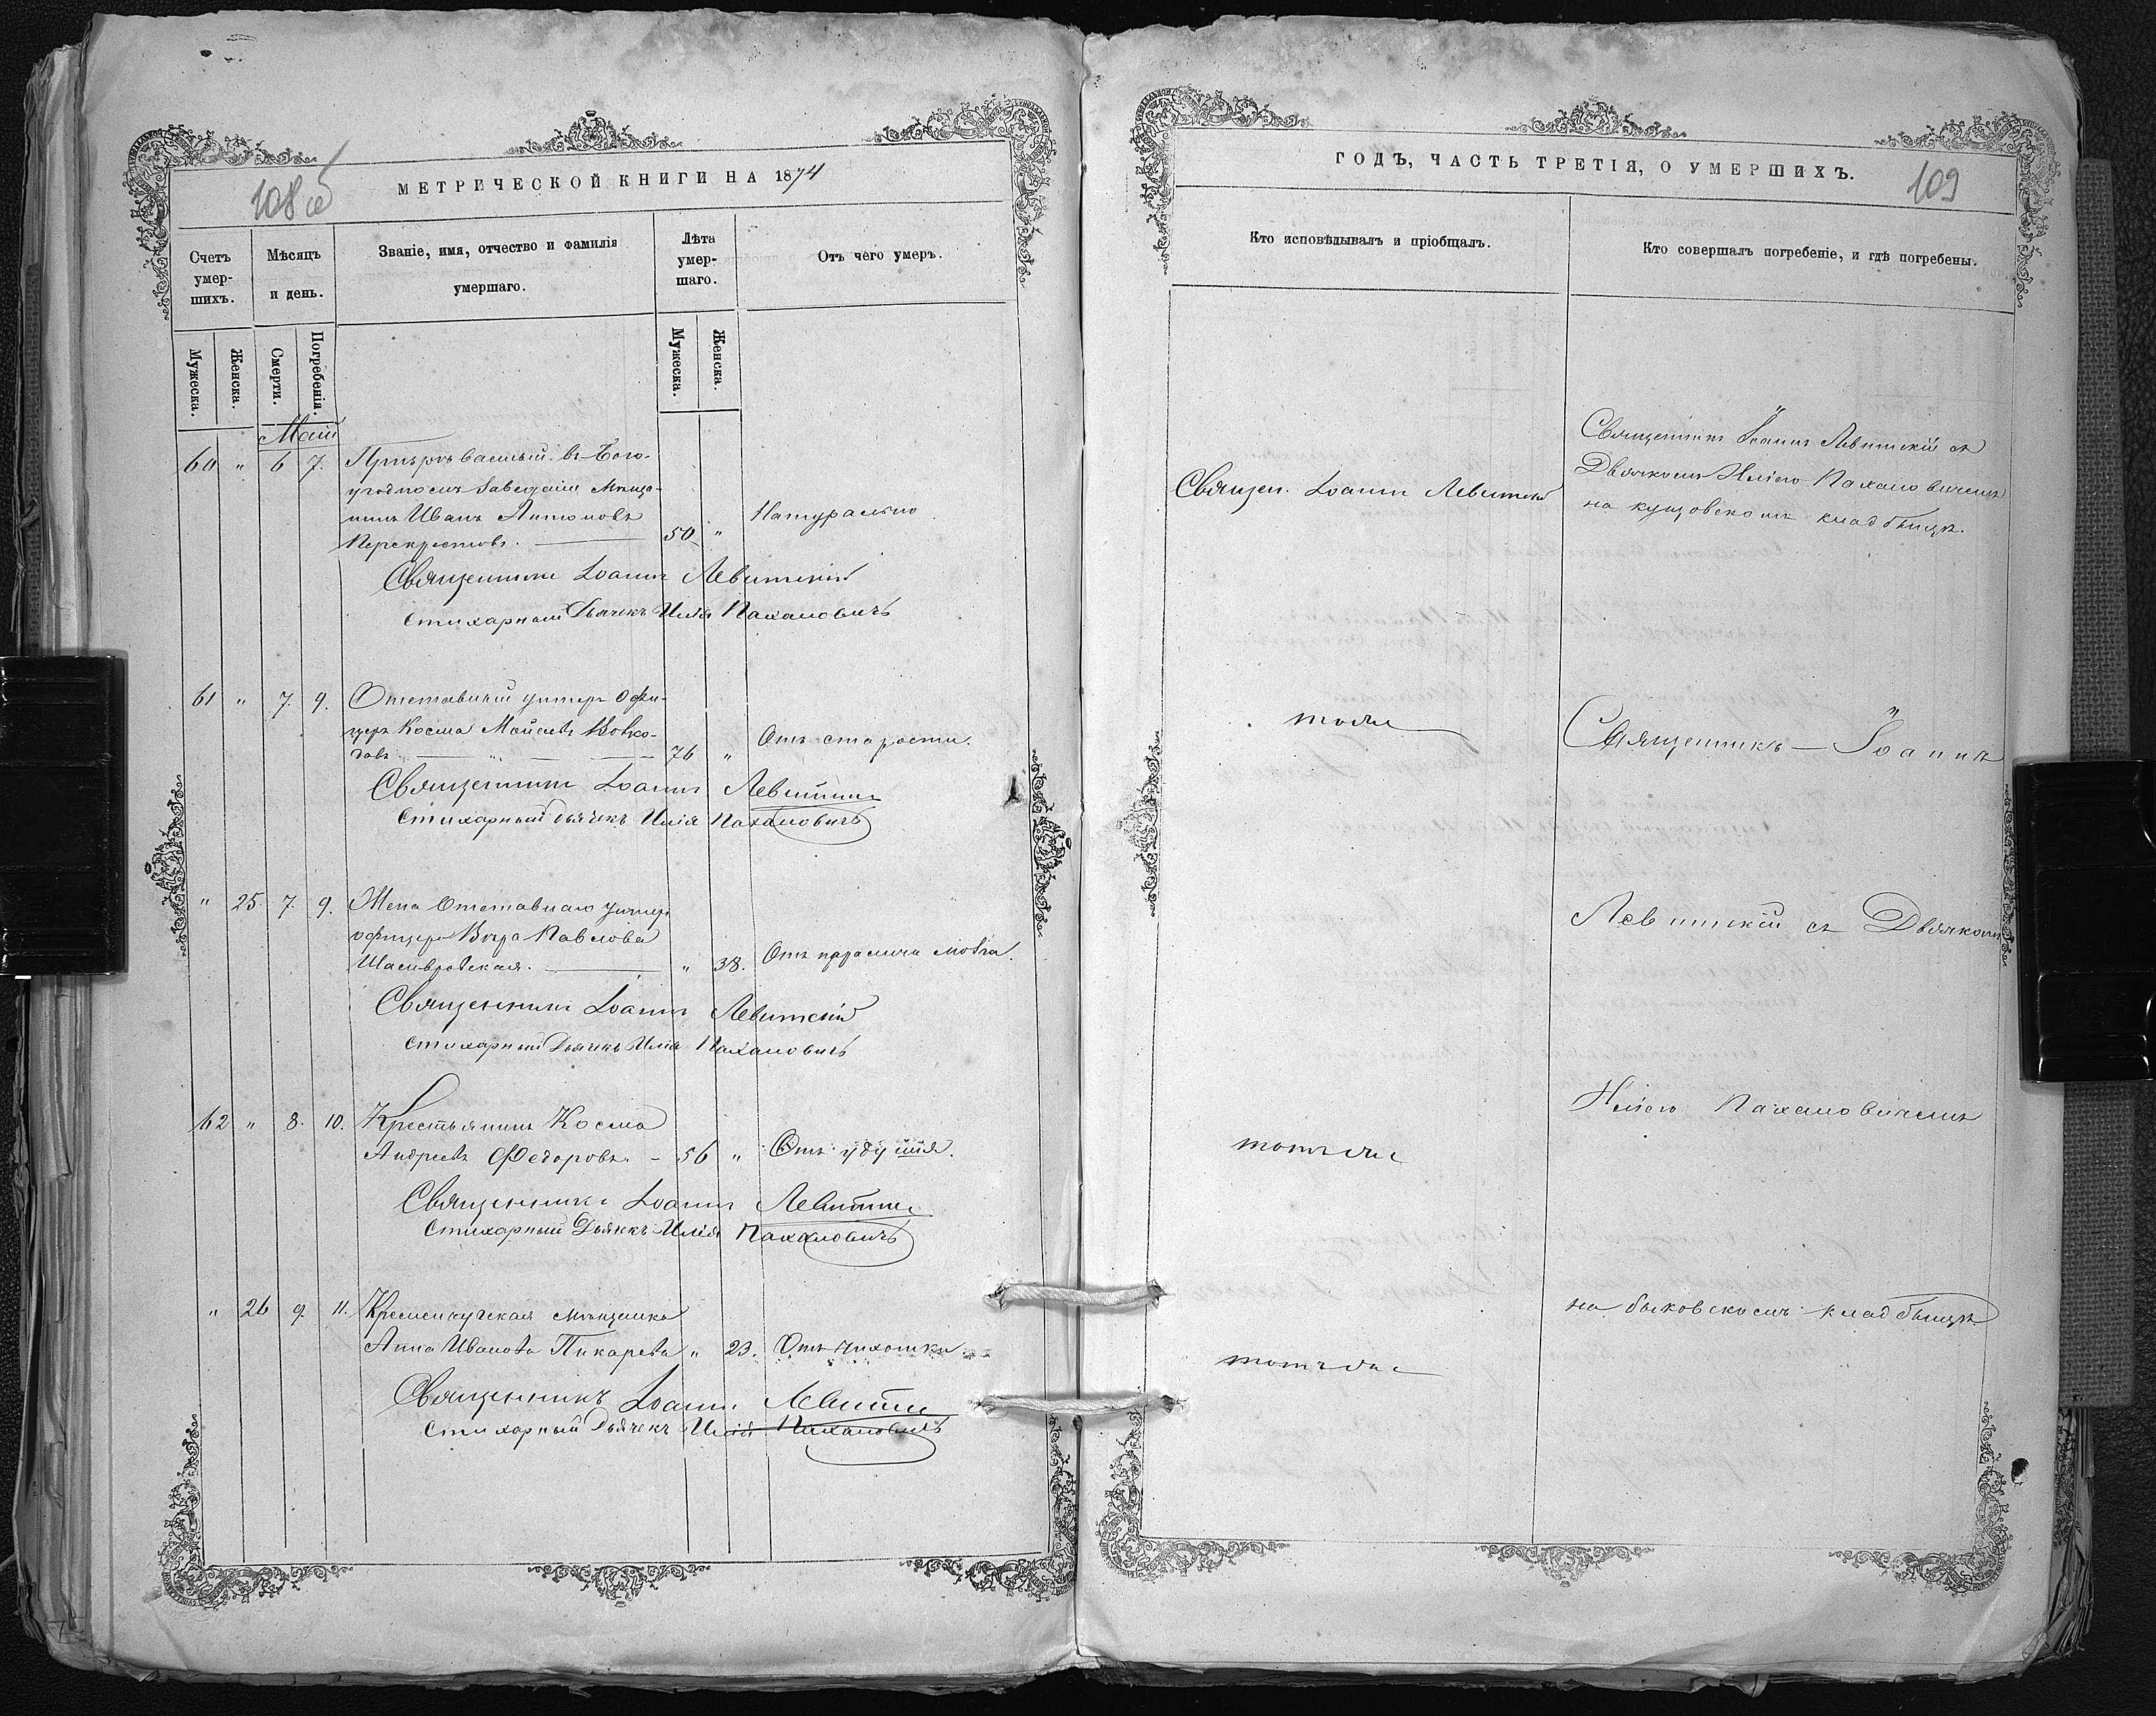 108 об
МЕТРИЧЕСКОЙ КНИГИ НА 1874
Счетъ умер-шихъ.
Мѣсяцъ и день.
Званіе, имя, отчество и фамилія умершаго.
Лѣта умер-шаго.
Отъ чего умеръ.
Мужеска.
Женска.
Смерти.
Погребенія.
Мужеска.
Женска.
Май
60 " 6 7.
въ Бого-
угодномъ Заведеніи Мѣща-
нинъ Иванъ Антоновъ
Перекрестовъ. 50 " Натурально
Священникъ Іоаннъ Левитскій
Стихарный Дьячекъ Илія Пахаловичъ
61 " 7. 9. Отставный унтеръ Офи-
церъ Косма Моисеевъ Вовко-
довъ 76 " Отъ старости.
Священникъ Іоаннъ Левитскій
Стихарный Дьячекъ Илія Пахаловичъ
" 25 7. 9. Жена Отставнаго унтеръ
офицера Вѣра Павлова
" 38. Отъ паралича мозга.
Священникъ Іоаннъ Левитскій
Стихарный Дьячекъ Илія Пахаловичъ
62 " 8. 10. Крестьянинъ Косма
Андреевъ Федоровъ. 56 " Отъ удушія.
Священникъ Іоаннъ Левитскій
Стихарный Дьячекъ Илія Пахаловичъ
" 26 9. 11. Кременчугская мѣщанка
Анна Иванова Пикарева " 23. Отъ чихотки.
Священникъ Іоаннъ Левитскій
Стихарный Дьячекъ Илія Пахаловичъ
ГОДЪ, ЧАСТЬ ТРЕТІЯ, О УМЕРШИХЪ.
109
Кто исповѣдывалъ и пріобщалъ.
Кто совершалъ погребеніе, и гдѣ погребены.
Священ. Іоаннъ Левитскій
Священникъ Іоаннъ Левитскій съ
Дьячкомъ Иліею Пахаловичемъ
на кущовскомъ кладбищѣ.
тоже
Священникъ — Іоаннъ
Левитскій съ Дьячкомъ
Иліею Пахаловичемъ
тотъже
на быковскомъ кладбищѣ
тотъже